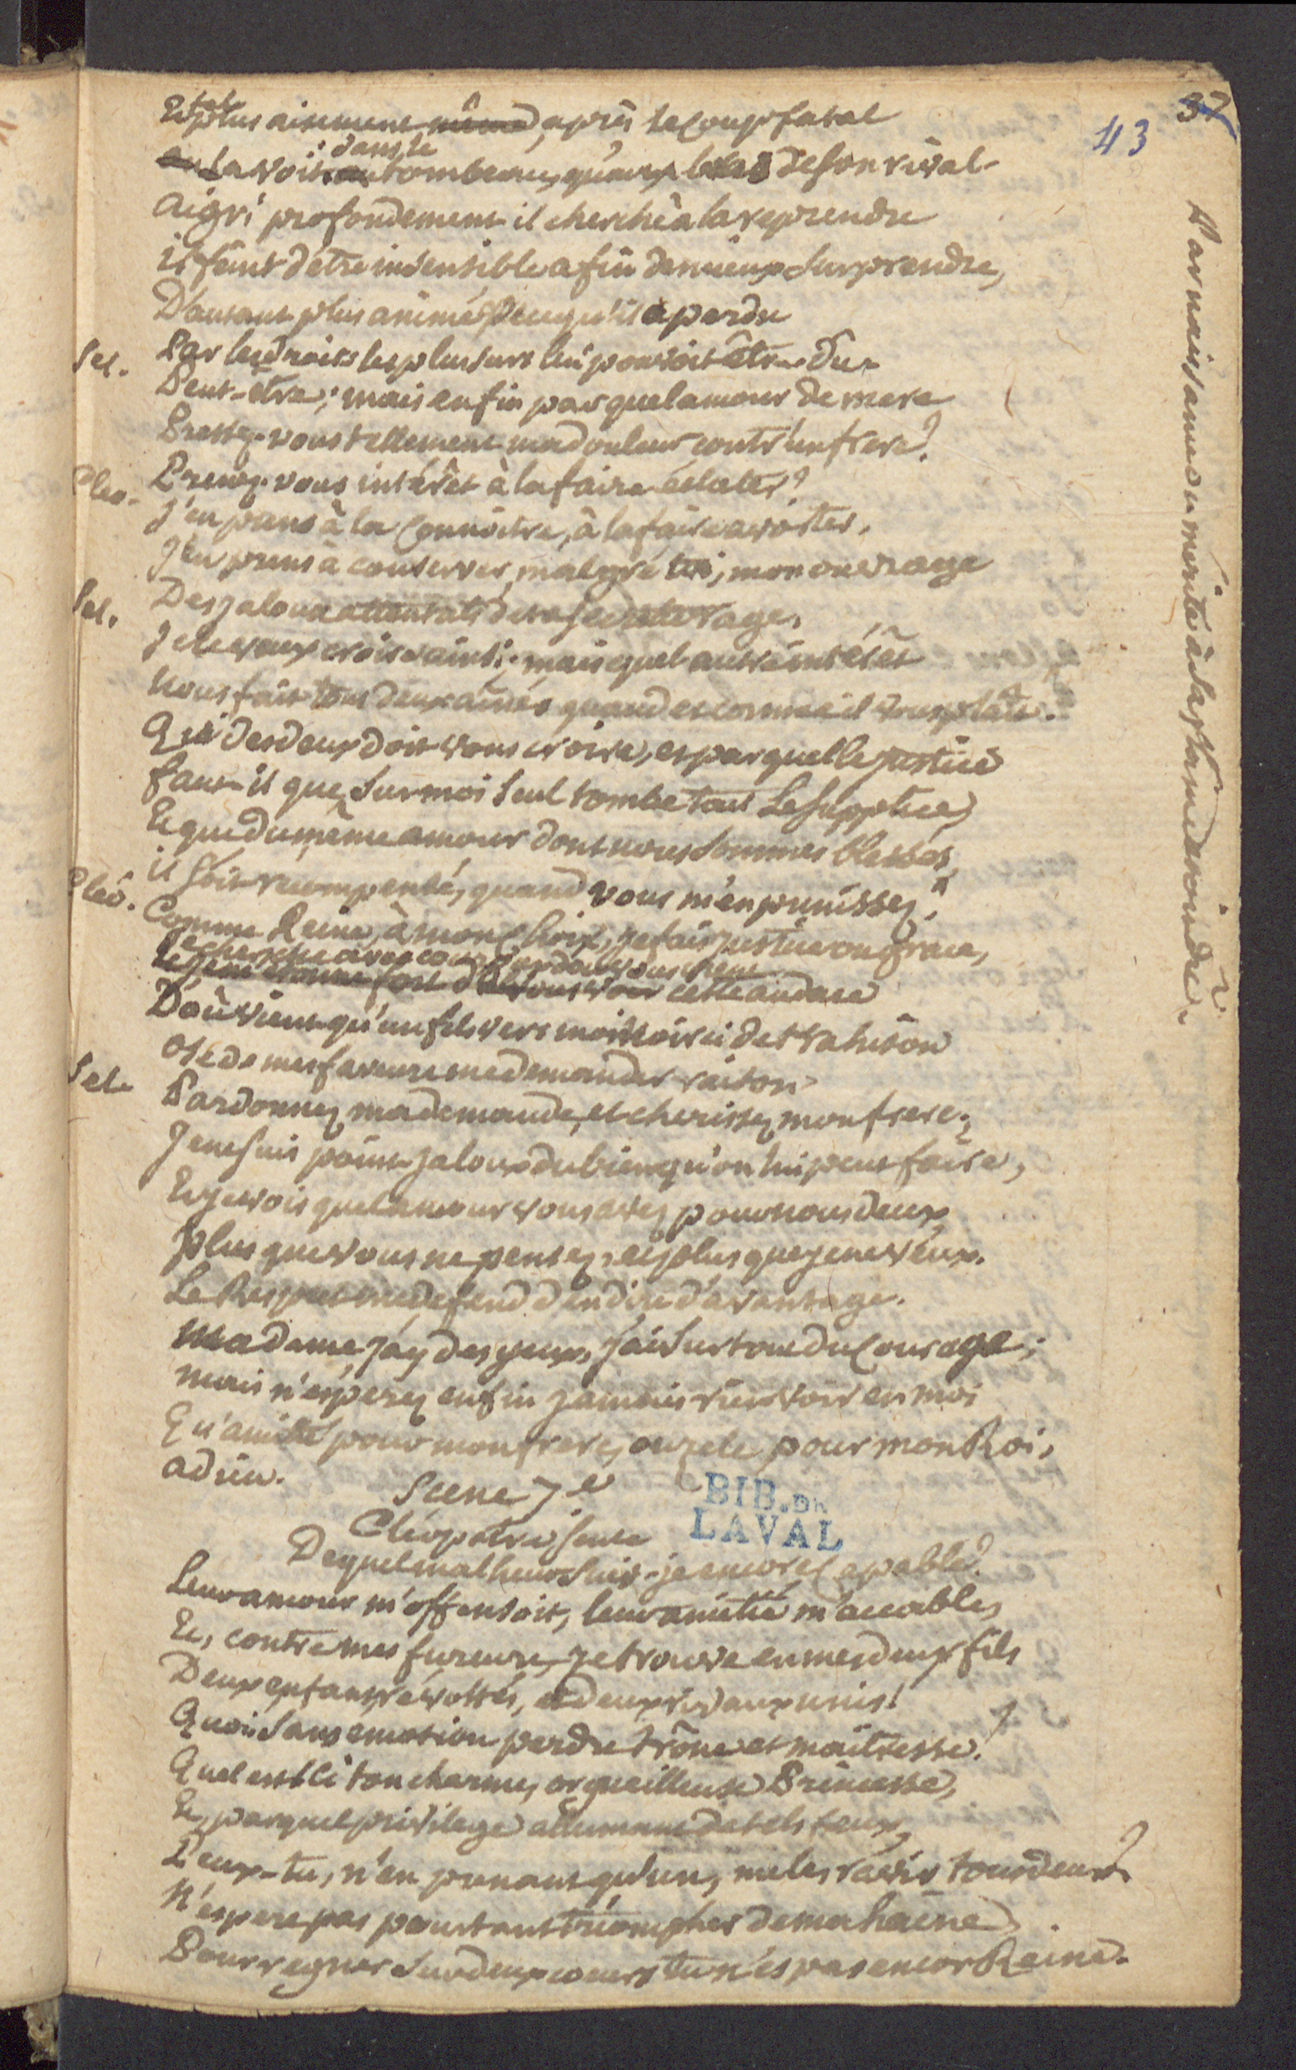 37
43
Et tel plus aisement même, après le coup fatal
on la voit au dans le tombeau, qu'aux bras de son rival.
Aigri profondement il cherche à la reprendre
il feint d'être insensible afin de mieux surprendre,
D'autant plus animé que ce qu'il a perdu
Par les droits les plus surs lui pouvoit être du.
Sel. Peut-être; mais enfin par quel amour de mere
Pressez-vous tellement ma douleur contr'un frere?
Prenez-vous intérêt à la faire éclater?
Cleo. J'en prens à la connoitre, à la faire avorter.
J'en prens à conserver, malgré toi, mon ouvrage
Des jaloux attentats de ta secrete rage.
Sel. Je le veux croire ainsi; mais quel autre intérêt
Nous fait tous deux ainés quand et comme il vous plait.
Qui des deux doit vous croire, et par quelle justice
faut-il que sur moi seul tombe tout le supplice,
Et que du même amour dont nous sommes blessés,
il soit recompensé, quand vous m'en punissez?
Cléo. Comme Reine, à mon choix, je fais justice ou grace,
Je cherche avec d'où vous vient
Et je m'étonne fort de vous voir cette audace
D'où vient qu'un fils vers moi noirci de trahison
Ose de mes faveurs me demander raison.
Sel. Pardonnez ma demande, et cherissez mon frere;
Je ne suis point jaloux du bien qu'on lui peut faire,
Et je vois quel amour vous avez pour nous deux
Plus que vous ne pensez, et plus que je ne veux.
Le Respect me defend d'en dire d'avantage.
Madame, j'ay des yeux, j'ai surtout du courage;
mais n'esperez enfin jamais rien voir en moi
Qu'amitié pour mon frere, ou zele pour mon Roi,
adieu.
Scene 7e
Cléopatre seule
De quel malheur suis-je encore capable?
Leur amour m'offensoit, leur amitié m'accable,
Et, contre mes fureurs, je trouve en mes deux fils
Deux enfans révoltés, et deux rivaux unis!
Quoi! sans emotion perdre trône et maitresse!
Quel est ici ton charme, orgueilleuse Princesse,
Et, par quel privilege allumant de tels feux,
Peux-tu, n'en prenant qu'un, me les ravir tous deux?
N'espere pas pourtant triompher de ma haine.
Pour regner sur deux coeurs tu n'es pas encor Reine.
BIB. DE
LAVAL